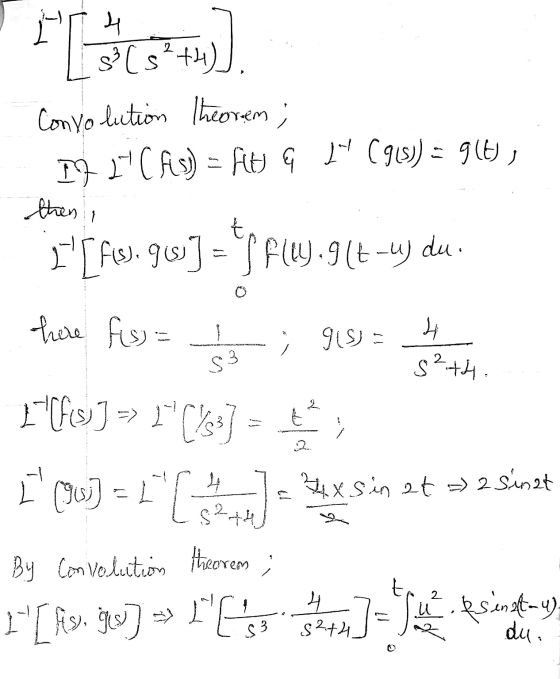 L⁻¹[ 4 / s³(s²+4) ].
Convolution theorem;
If L⁻¹(f(s)) = f(t) & L⁻¹(g(s)) = g(t),
then,
L⁻¹[f(s). g(s)] = ∫₀ᵗ f(u).g(t-u) du.
here f(s) = 1/s³ ; g(s) = 4/s²+4.
L⁻¹[f(s)] ⇒ L⁻¹[1/s³] = t²/2 ;
L⁻¹(g(s)) = L⁻¹[4/s²+4] = 4/2 x sin 2t ⇒ 2 sin2t
By Convolution theorem;
L⁻¹[f(s). g(s)] ⇒ L⁻¹[1/s³ . 4/s²+4] = ∫₀ᵗ u²/2 . 2 sin2(t-u) du.